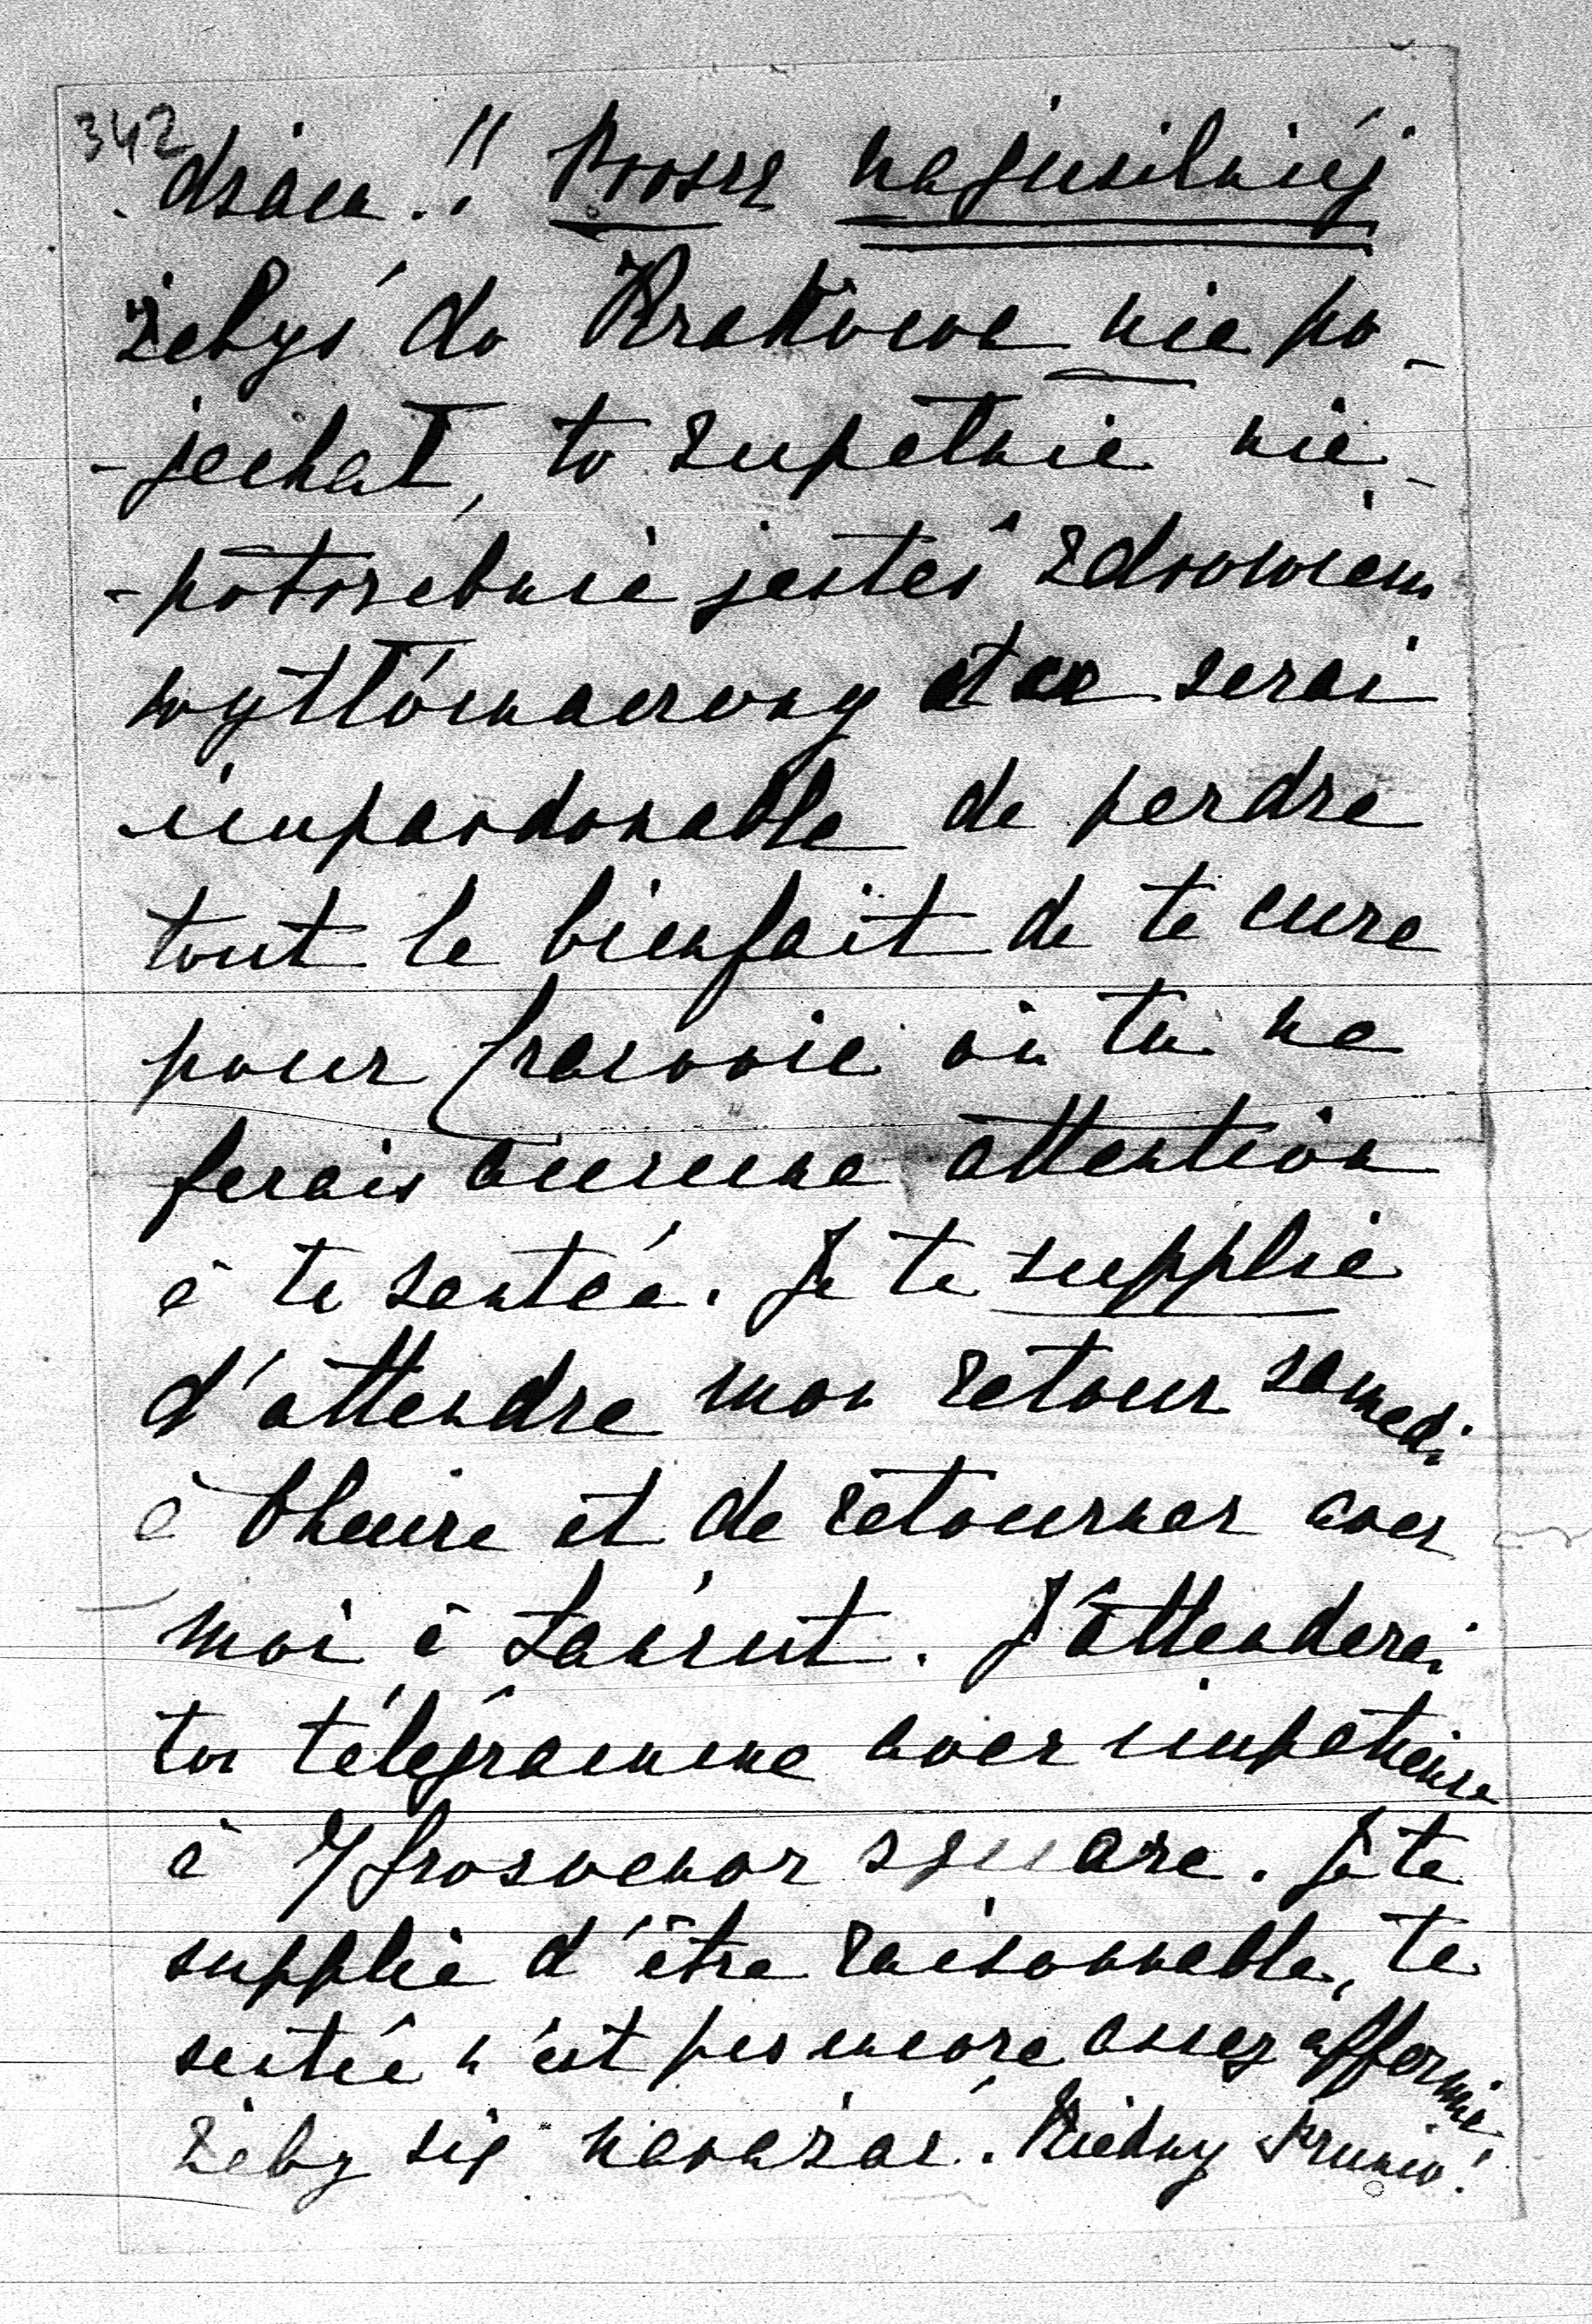 342
dzień!! Proszę najusilniéj
żebyś do Krakowa nie po-
-jechał, to zupełnie nie-
-potrzebnie jesteś zdrowiem
wytłómaczony et ce serai
impardonable de perdre
tout le bienfait de ta cure
pour Cracovie où tu ne
ferais aucune attention
à ta santée. Je te supplie
d'attendre mon retour samedi
à Vienne et de retourner avec
moi à Łańcut. J'attenderai
ton télégramme avec impatience
à 7 Grosvenor square. Je te
supplie d'être raisonnable, ta
santée n'est pas encore assez affermie,
żeby się narażać. Biedny Brunio!